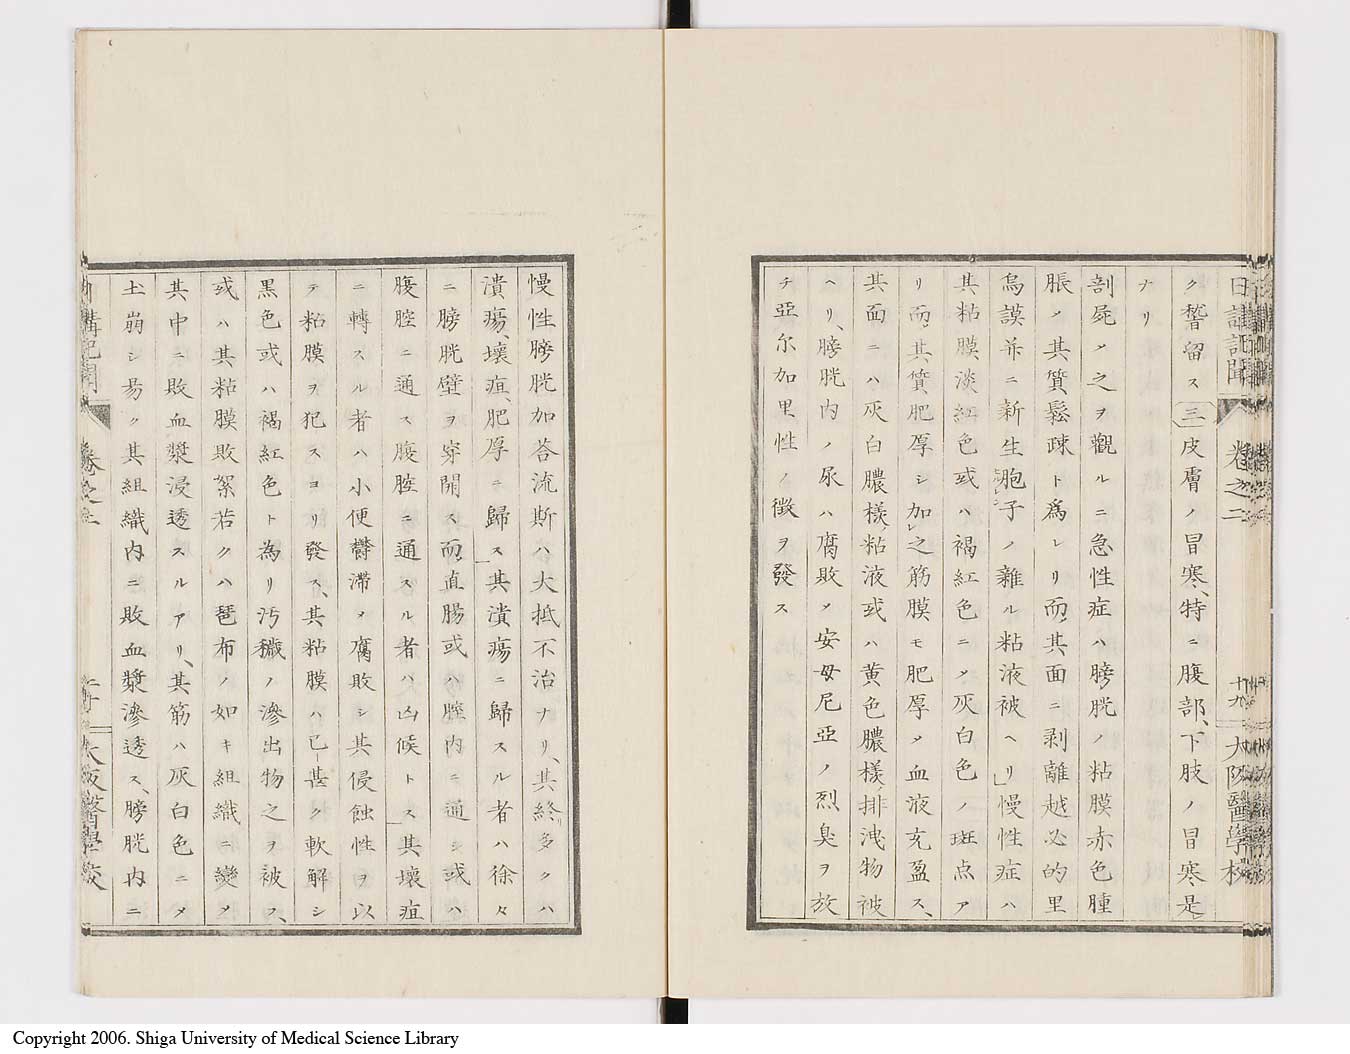 日講記聞 卷之二 十九 大阪醫學校
ク瞀留ス三皮膚ノ冒寒、特ニ腹部、下肢ノ冒寒是
ナリ
剖屍メ之ヲ觀ルニ急性症ハ膀胱ノ粘膜赤色腫
脹メ其質鬆疎ト為レリ而其面ニ剥離越必的里
烏謨并ニ新生胞子ノ雜ル粘液被ヘリ」慢性症ハ
其粘膜淡紅色或ハ褐紅色ニメ灰白色ノ斑点ア
リ而其質肥厚シ加之筋膜モ肥厚メ血液充盈ス、
其面ニハ灰白膿樣粘液或ハ黄色膿樣排洩物被
ヘリ、膀胱内ノ尿ハ腐敗メ安母尼亞ノ烈臭ヲ放
チ亞尔加里性ノ徴ヲ發ス
慢性膀胱加荅流斯ハ大抵不治ナリ、其終多クハ
潰瘍、壞疽、肥厚ニ歸ス其潰瘍ニ歸スル者ハ徐々
ニ膀胱壁ヲ穿開ス而直腸或ハ腟内ニ通シ或ハ
腹腔ニ通ス腹腔ニ通スル者ハ凶候トス其壞疽
ニ轉スル者ハ小便欝滯メ腐敗シ其侵蝕性ヲ以
テ粘膜ヲ犯スヨリ發ス、其粘膜ハ已甚ク軟解シ
黒色或ハ褐紅色ト為リ汚穢ノ滲出物之ヲ被フ、
或ハ其粘膜敗絮若クハ琶布ノ如キ組織ニ變メ
其中ニ敗血漿浸透スルアリ、其筋ハ灰白色ニメ
土崩シ易ク其組織内ニ敗血漿滲透ス、膀胱内ニ
講記聞 卷之二 二十 大阪醫學校
Copyright 2006. Shiga University of Medical Science Library